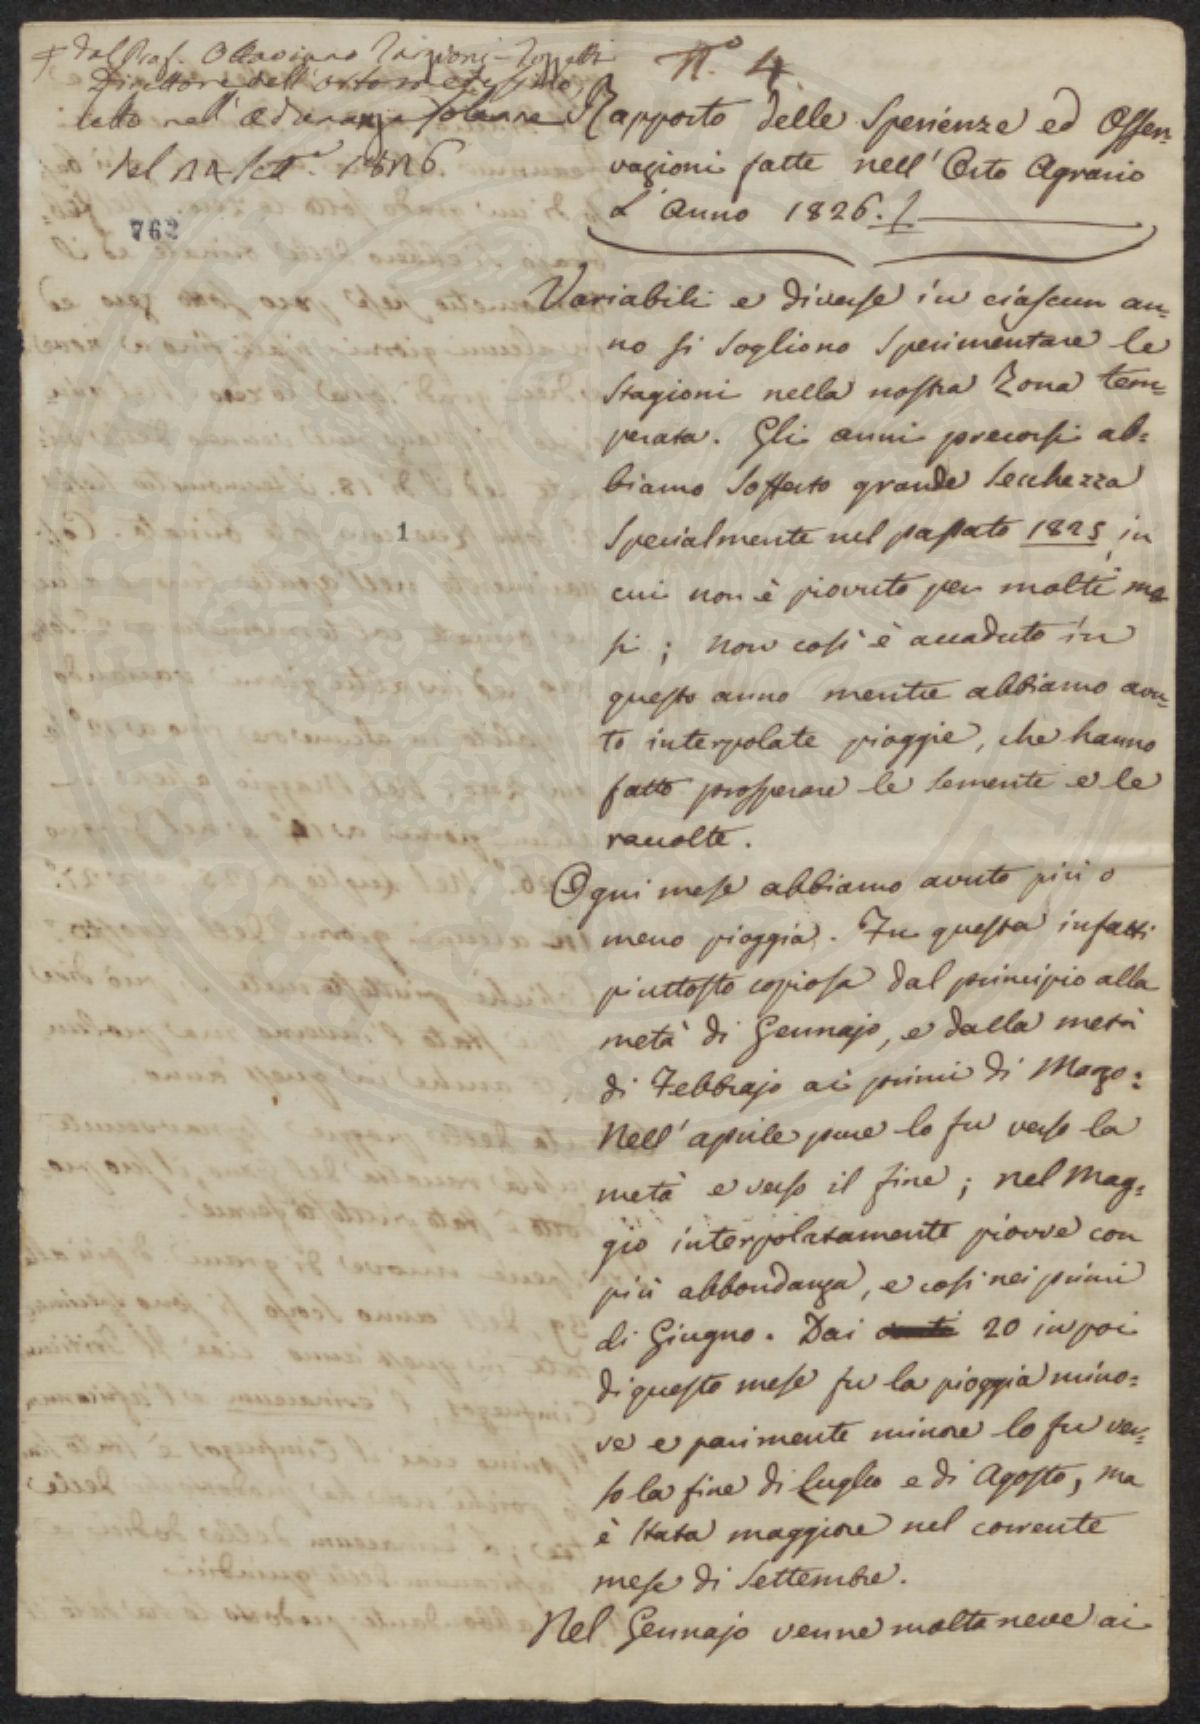 N.° 4
+ dal Prof. Ottaviano Targioni-Tozzetti
Direttore dell'orto medesimo
letto nell'Adunanza Solenne
del 14 Sett.e 1826
762
Rapporto delle Sperienze ed Osser-
vazioni fatte nell'Orto Agrario
L'Anno 1826. +
Variabili e diverse in ciascun an-
no si sogliono sperimentare le
Stagioni nella nostra Zona tem-
perata. Gli anni precorsi ab-
biamo sofferto grande secchezza
specialmente nel passato 1825 in
cui non è piovuto per molti me-
si; non così è accaduto in
questo anno mentre abbiamo avu-
to interpolate pioggie, che hanno
fatto prosperare le sementi e le
raccolte.
1
Ogni mese abbiamo avuto più o
meno pioggia. Fu questa infatti
piuttosto copiosa dal principio alla
metà di Gennajo, e dalla metà
di Febbrajo ai primi di Marzo:
Nell'aprile pure lo fu verso la
metà e verso il fine; nel Mag-
gio interpolatamente piovve con
più abbondanza, e così nei primi
di Giugno. Dai 20 in poi
di questo mese fu la pioggia mino-
re e parimente minore lo fu ver-
so la fine di Luglio e di Agosto, ma
è stata maggiore nel corrente
mese di Settembre.
Nel Gennajo venne molta neve ai